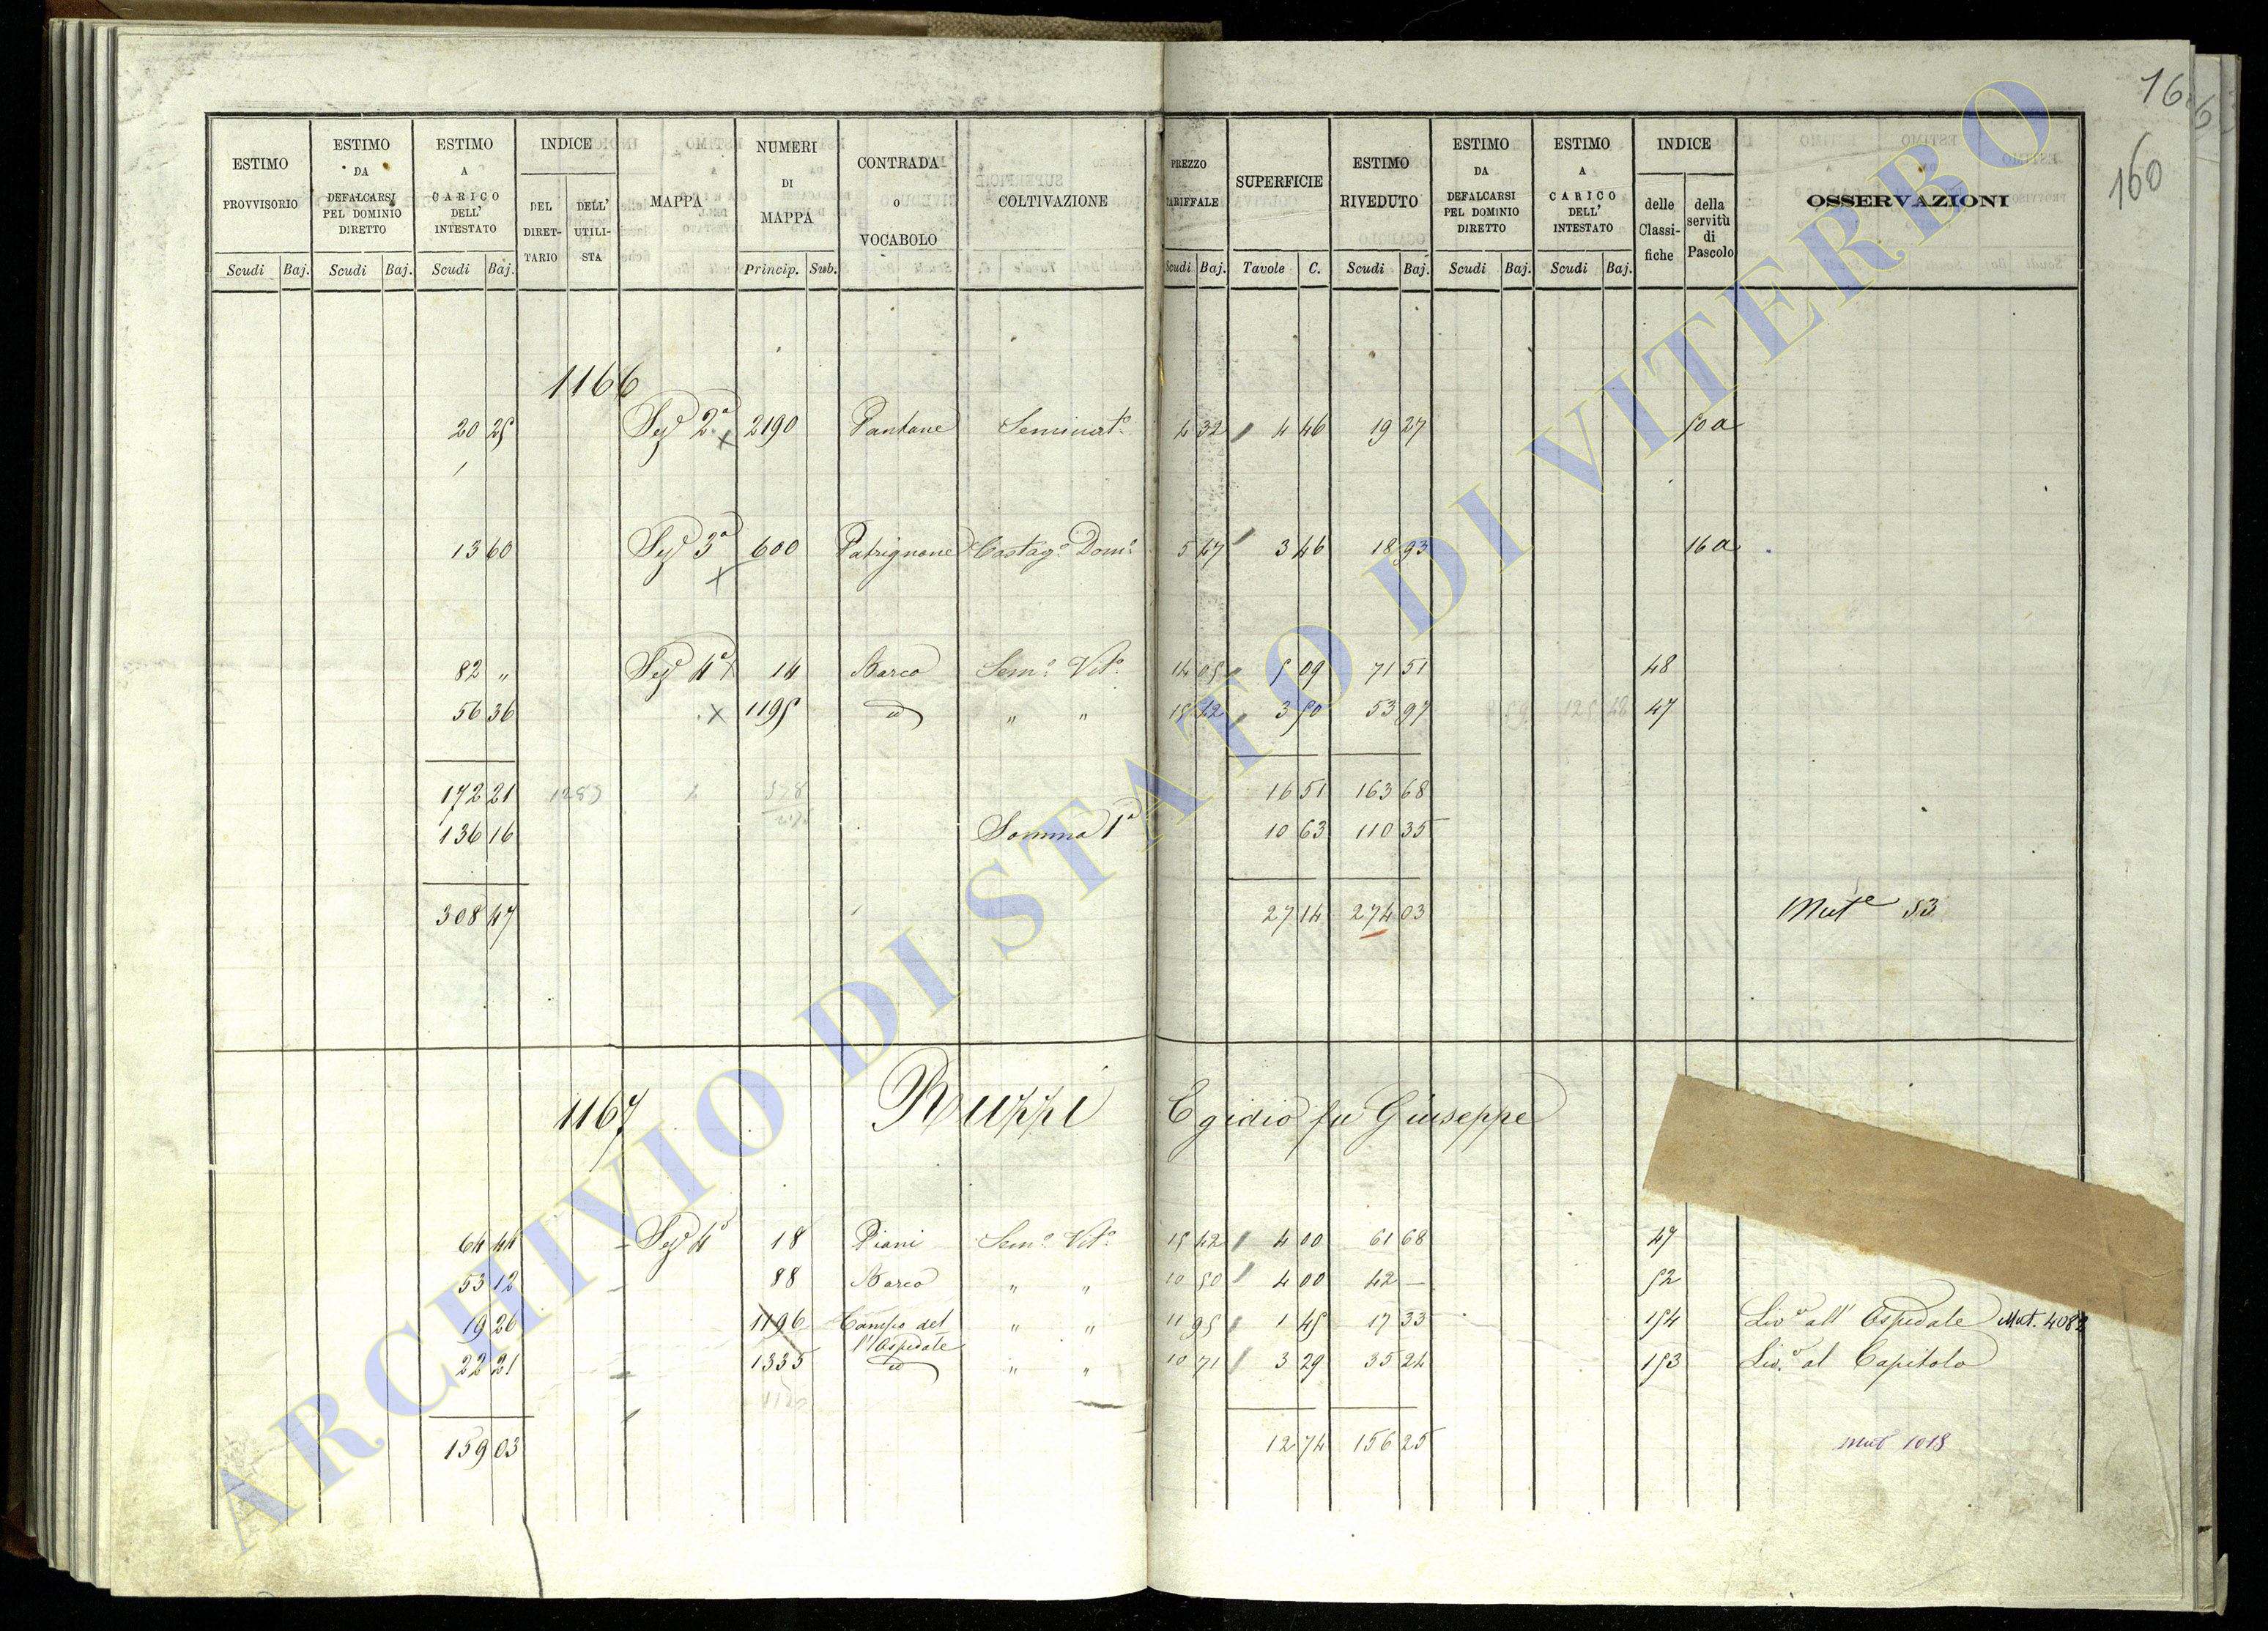 160
ESTIMO PROVVISORIO Scudi Baj.
ESTIMO DA DEFALCARSI PEL DOMINIO DIRETTO Scudi Baj.
ESTIMO A CARICO DELL' INTESTATO Scudi Baj.
INDICE DEL DIRET-TARIO DELL' UTILI-STA
MAPPA
NUMERI DI MAPPA Princip. Sub.
CONTRADA o VOCABOLO
COLTIVAZIONE
PREZZO TARIFFALE Scudi Baj.
SUPERFICIE Tavole C.
ESTIMO RIVEDUTO Scudi Baj.
ESTIMO DA DEFALCARSI PEL DOMINIO DIRETTO Scudi Baj.
ESTIMO A CARICO DELL' INTESTATO Scudi Baj.
INDICE delle Classi-fiche della servitù di Pascolo
OSSERVAZIONI
1166
20 25 Sez 2ª x 2190 Pantane Seminatº 4 32 4 46 19 27 50 a
13 60 Sez 3ª x 600 Patrignone Castagº Domº 5 47 3 46 18 93 16 a
82 " Sez 4ª x 14 Barco Semº Vitº 14 05 5 09 71 51 48
56 36 x 1195 id " " 15 42 3 50 53 97 47
172 21 16 51 163 68
136 16 Somma 1ª 10 63 110 35
308 47 27 14 274 03 Mutᵉ 53
1167 Ruppi Egidio fu Giuseppe
64 44 Sez 4ª 18 Piani Semº Vitº 15 42 4 00 61 68 47
53 12 88 Barco " " 10 50 4 00 42 — 52
19 26 1196 Campo del l'Ospedale " " 11 95 1 45 17 33 154 Livº all' Ospedale Mut. 4082
22 21 1335 id " " 10 71 3 29 35 24 153 Liv.º al Capitolo
159 03 12 74 156 25 Mut 1018
ARCHIVIO DI STATO DI VITERBO